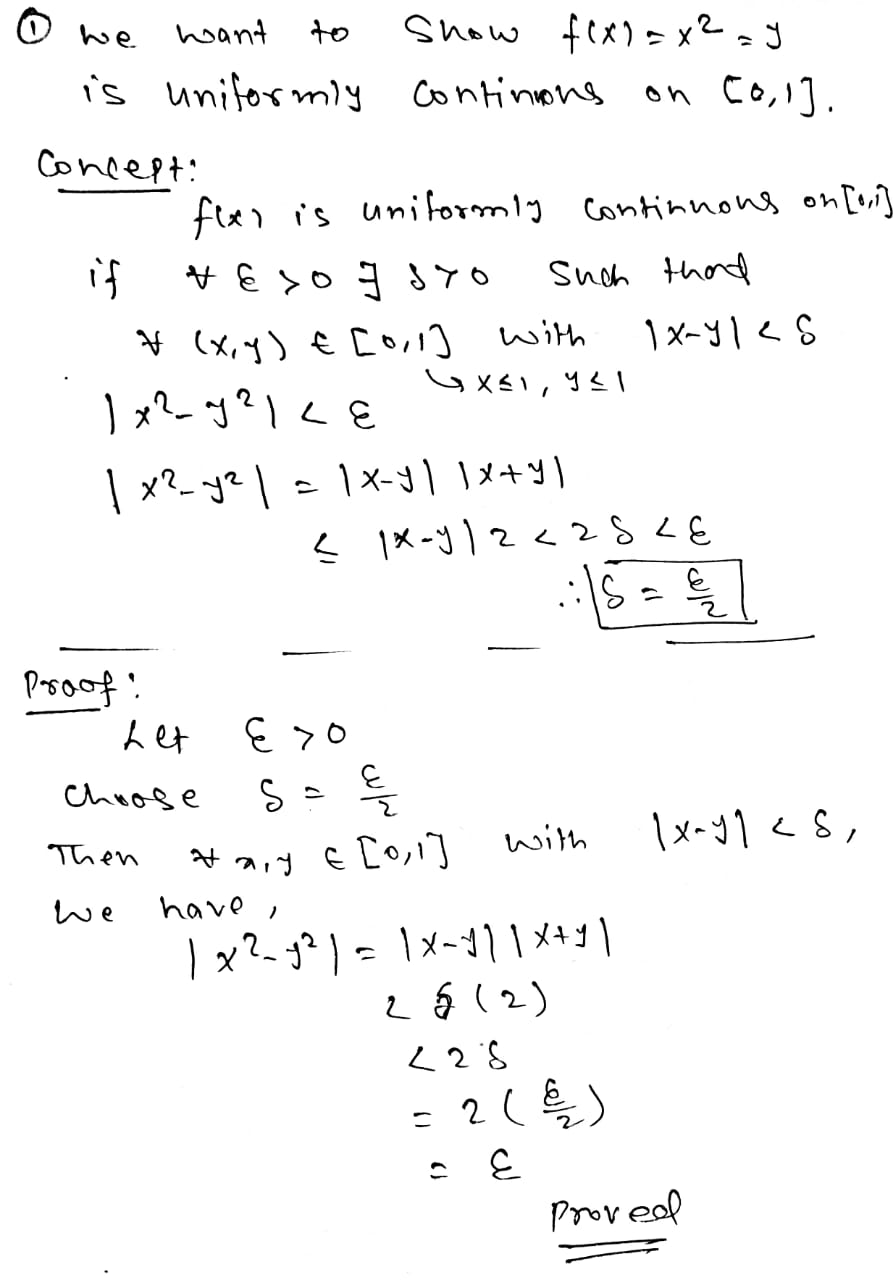 ① We want to show f(x) = x² = y
is uniformly continuous on [0,1].
Concept:
f(x) is uniformly continuous on [0,1]
if ∀ ε > 0 ∃ δ > 0 such that
∀ (x,y) ∈ [0,1] with |x-y| < δ
↳ x≤1, y≤1
|x²-y²| < ε
|x²-y²| = |x-y| |x+y|
≤ |x-y| 2 < 2δ < ε
∴ δ = ε/2
Proof:
Let ε > 0
Choose δ = ε/2
Then ∀ x,y ∈ [0,1] with |x-y| < δ,
we have,
|x²-y²| = |x-y| |x+y|
< δ (2)
< 2δ
= 2 (ε/2)
= ε
Proved